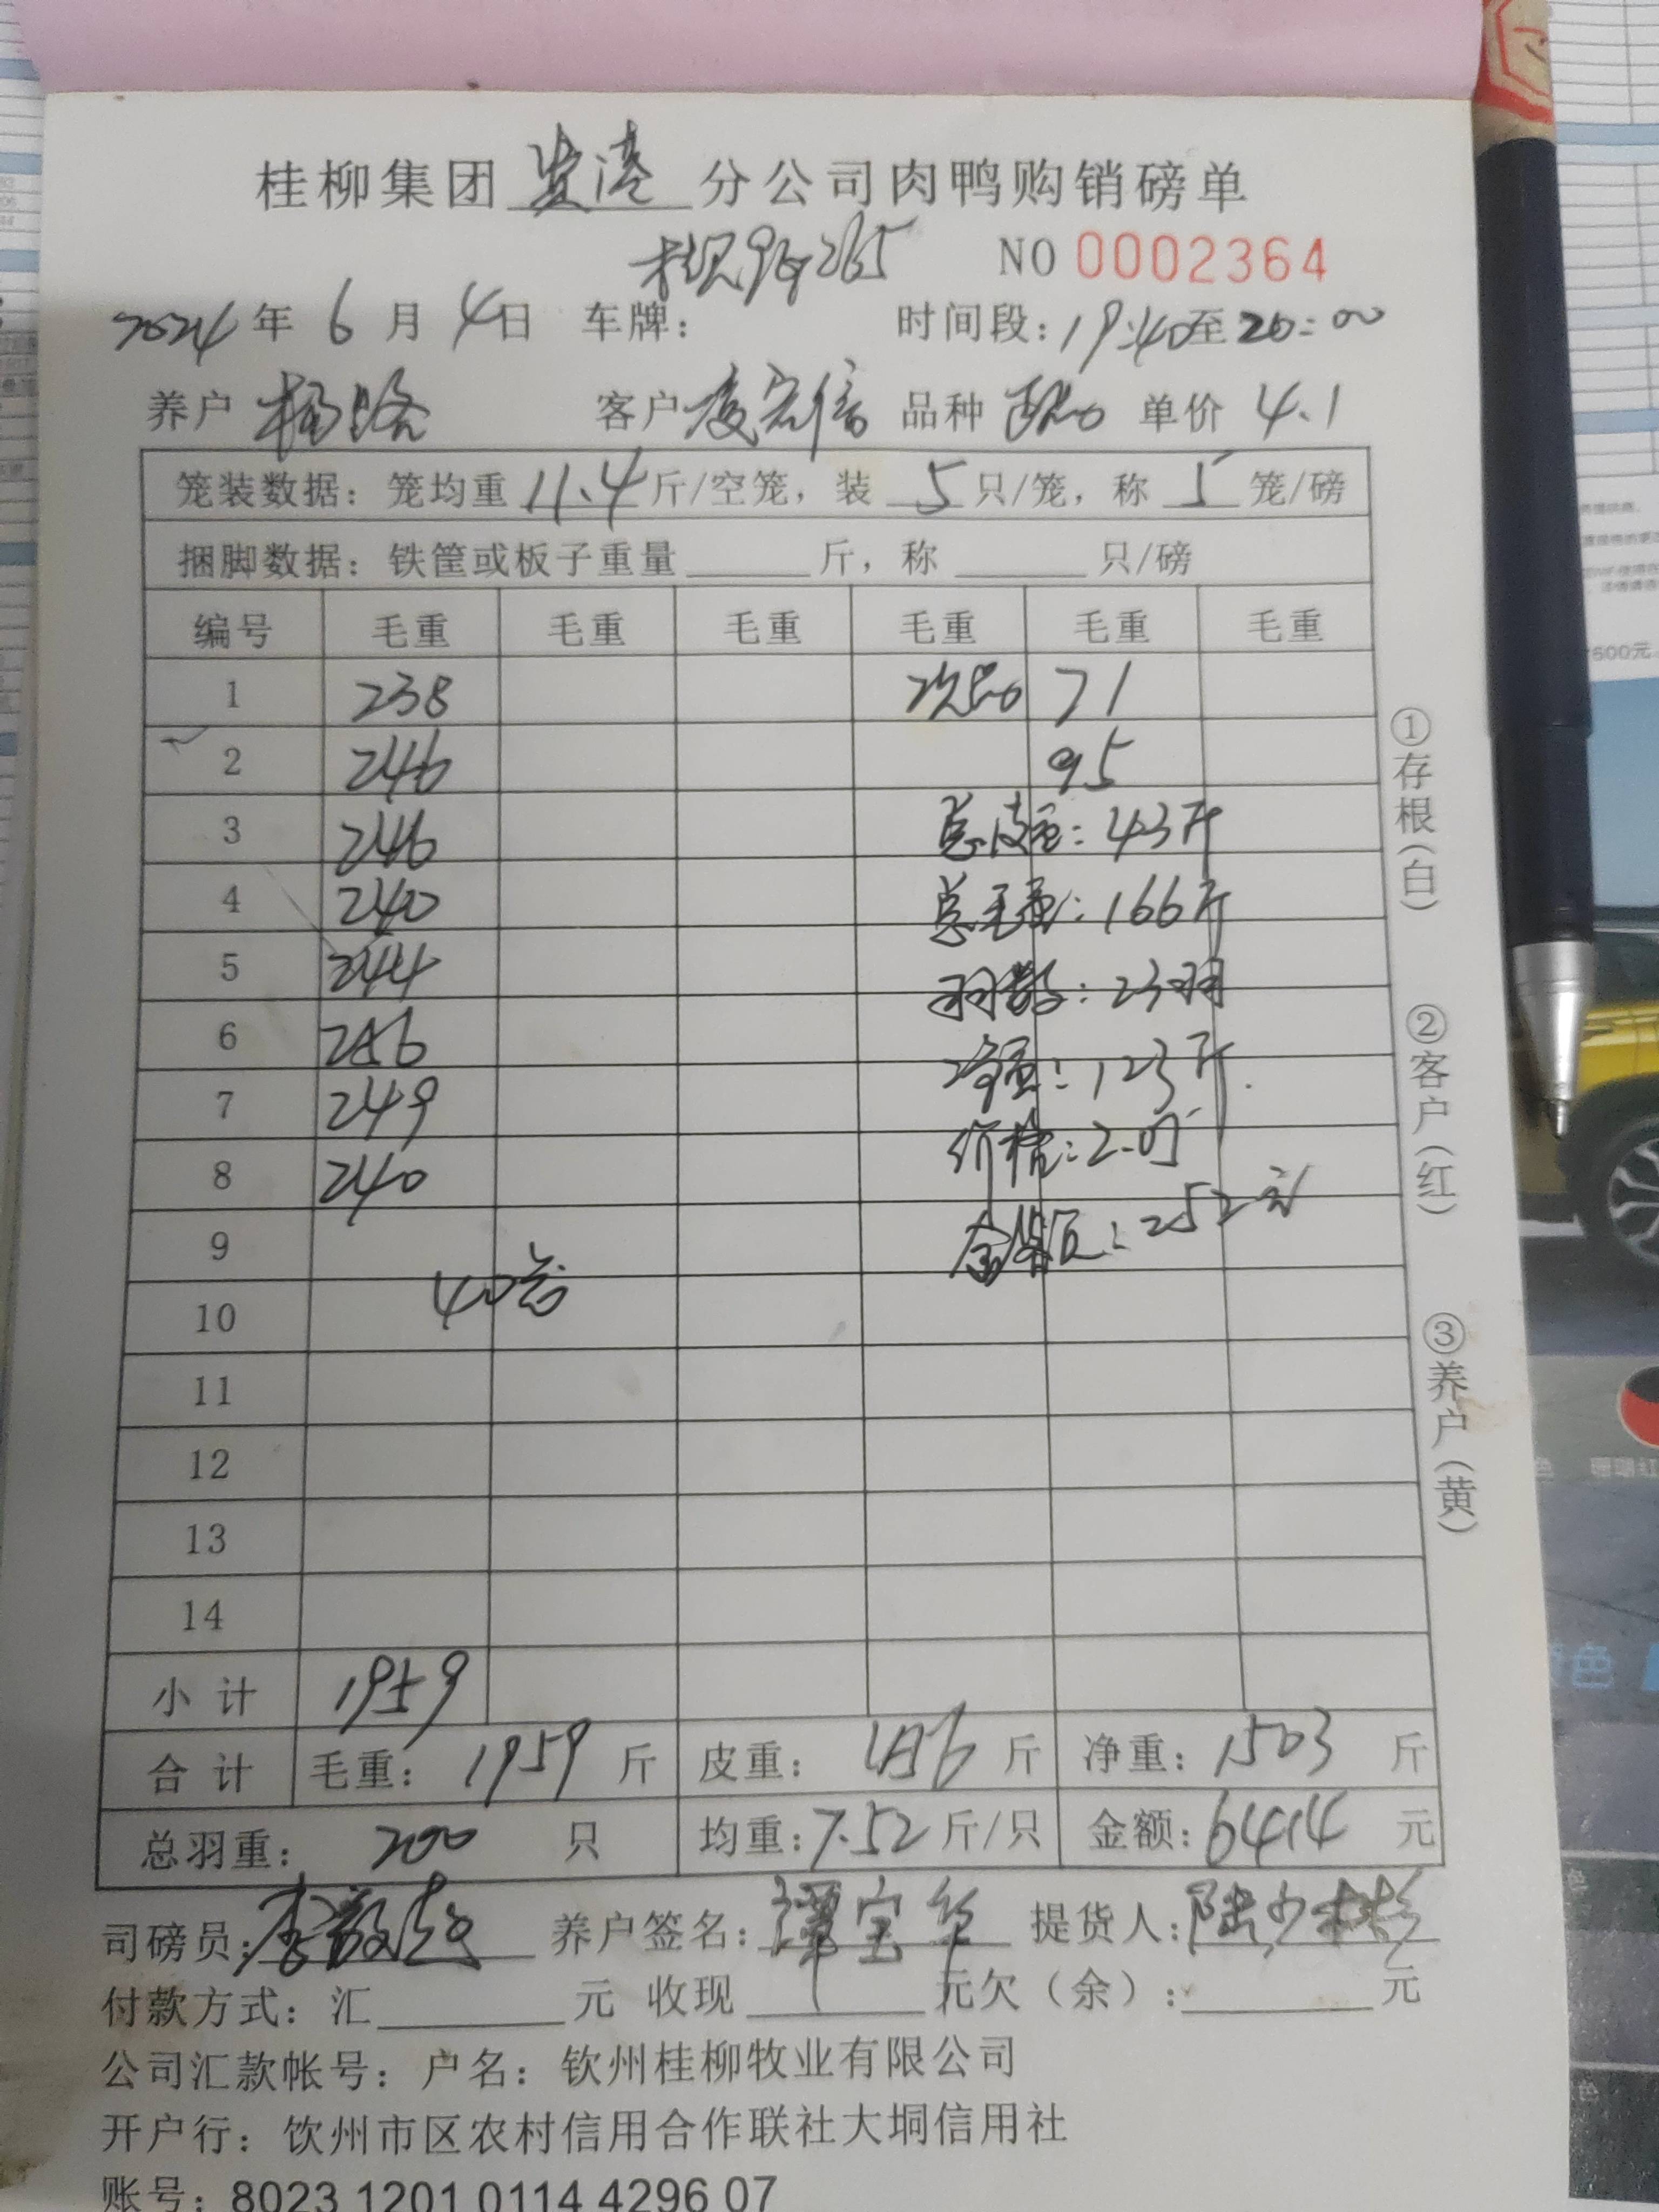 桂柳集团 分公司肉鸭购销磅单
NO 0002364
2024年 6月 4日 车牌: 时间段: 19:40至20:00
养户 客户 凌宏信 品种 单价 4.1
笼装数据: 笼均重 11.4 斤/空笼, 装 5 只/笼, 称 5 笼/磅
捆脚数据: 铁筐或板子重量 斤, 称 只/磅
编号 毛重 毛重 毛重 毛重 毛重 毛重
1 238 次品 71
2 246 95
3 246 总皮重: 43斤
4 240 总毛重: 166斤
5 244 羽数: 23羽
6 256 净重: 123斤
7 249 价格: 2.05
8 240
9 金额: 252元
10 40笼
11
12
13
14
小计 1959
合计 毛重: 1959 斤 皮重: 456 斤 净重: 1503 斤
总羽重: 200 只 均重: 7.52 斤/只 金额: 6414 元
司磅员: 养户签名: 提货人: 陆少彬
付款方式: 汇 元 收现 元欠(余): 元
公司汇款帐号: 户名: 钦州桂柳牧业有限公司
开户行: 饮州市区农村信用合作联社大垌信用社
账号: 8023 1201 0114 4296 07
①存根(白)
②客户(红)
③养户(黄)